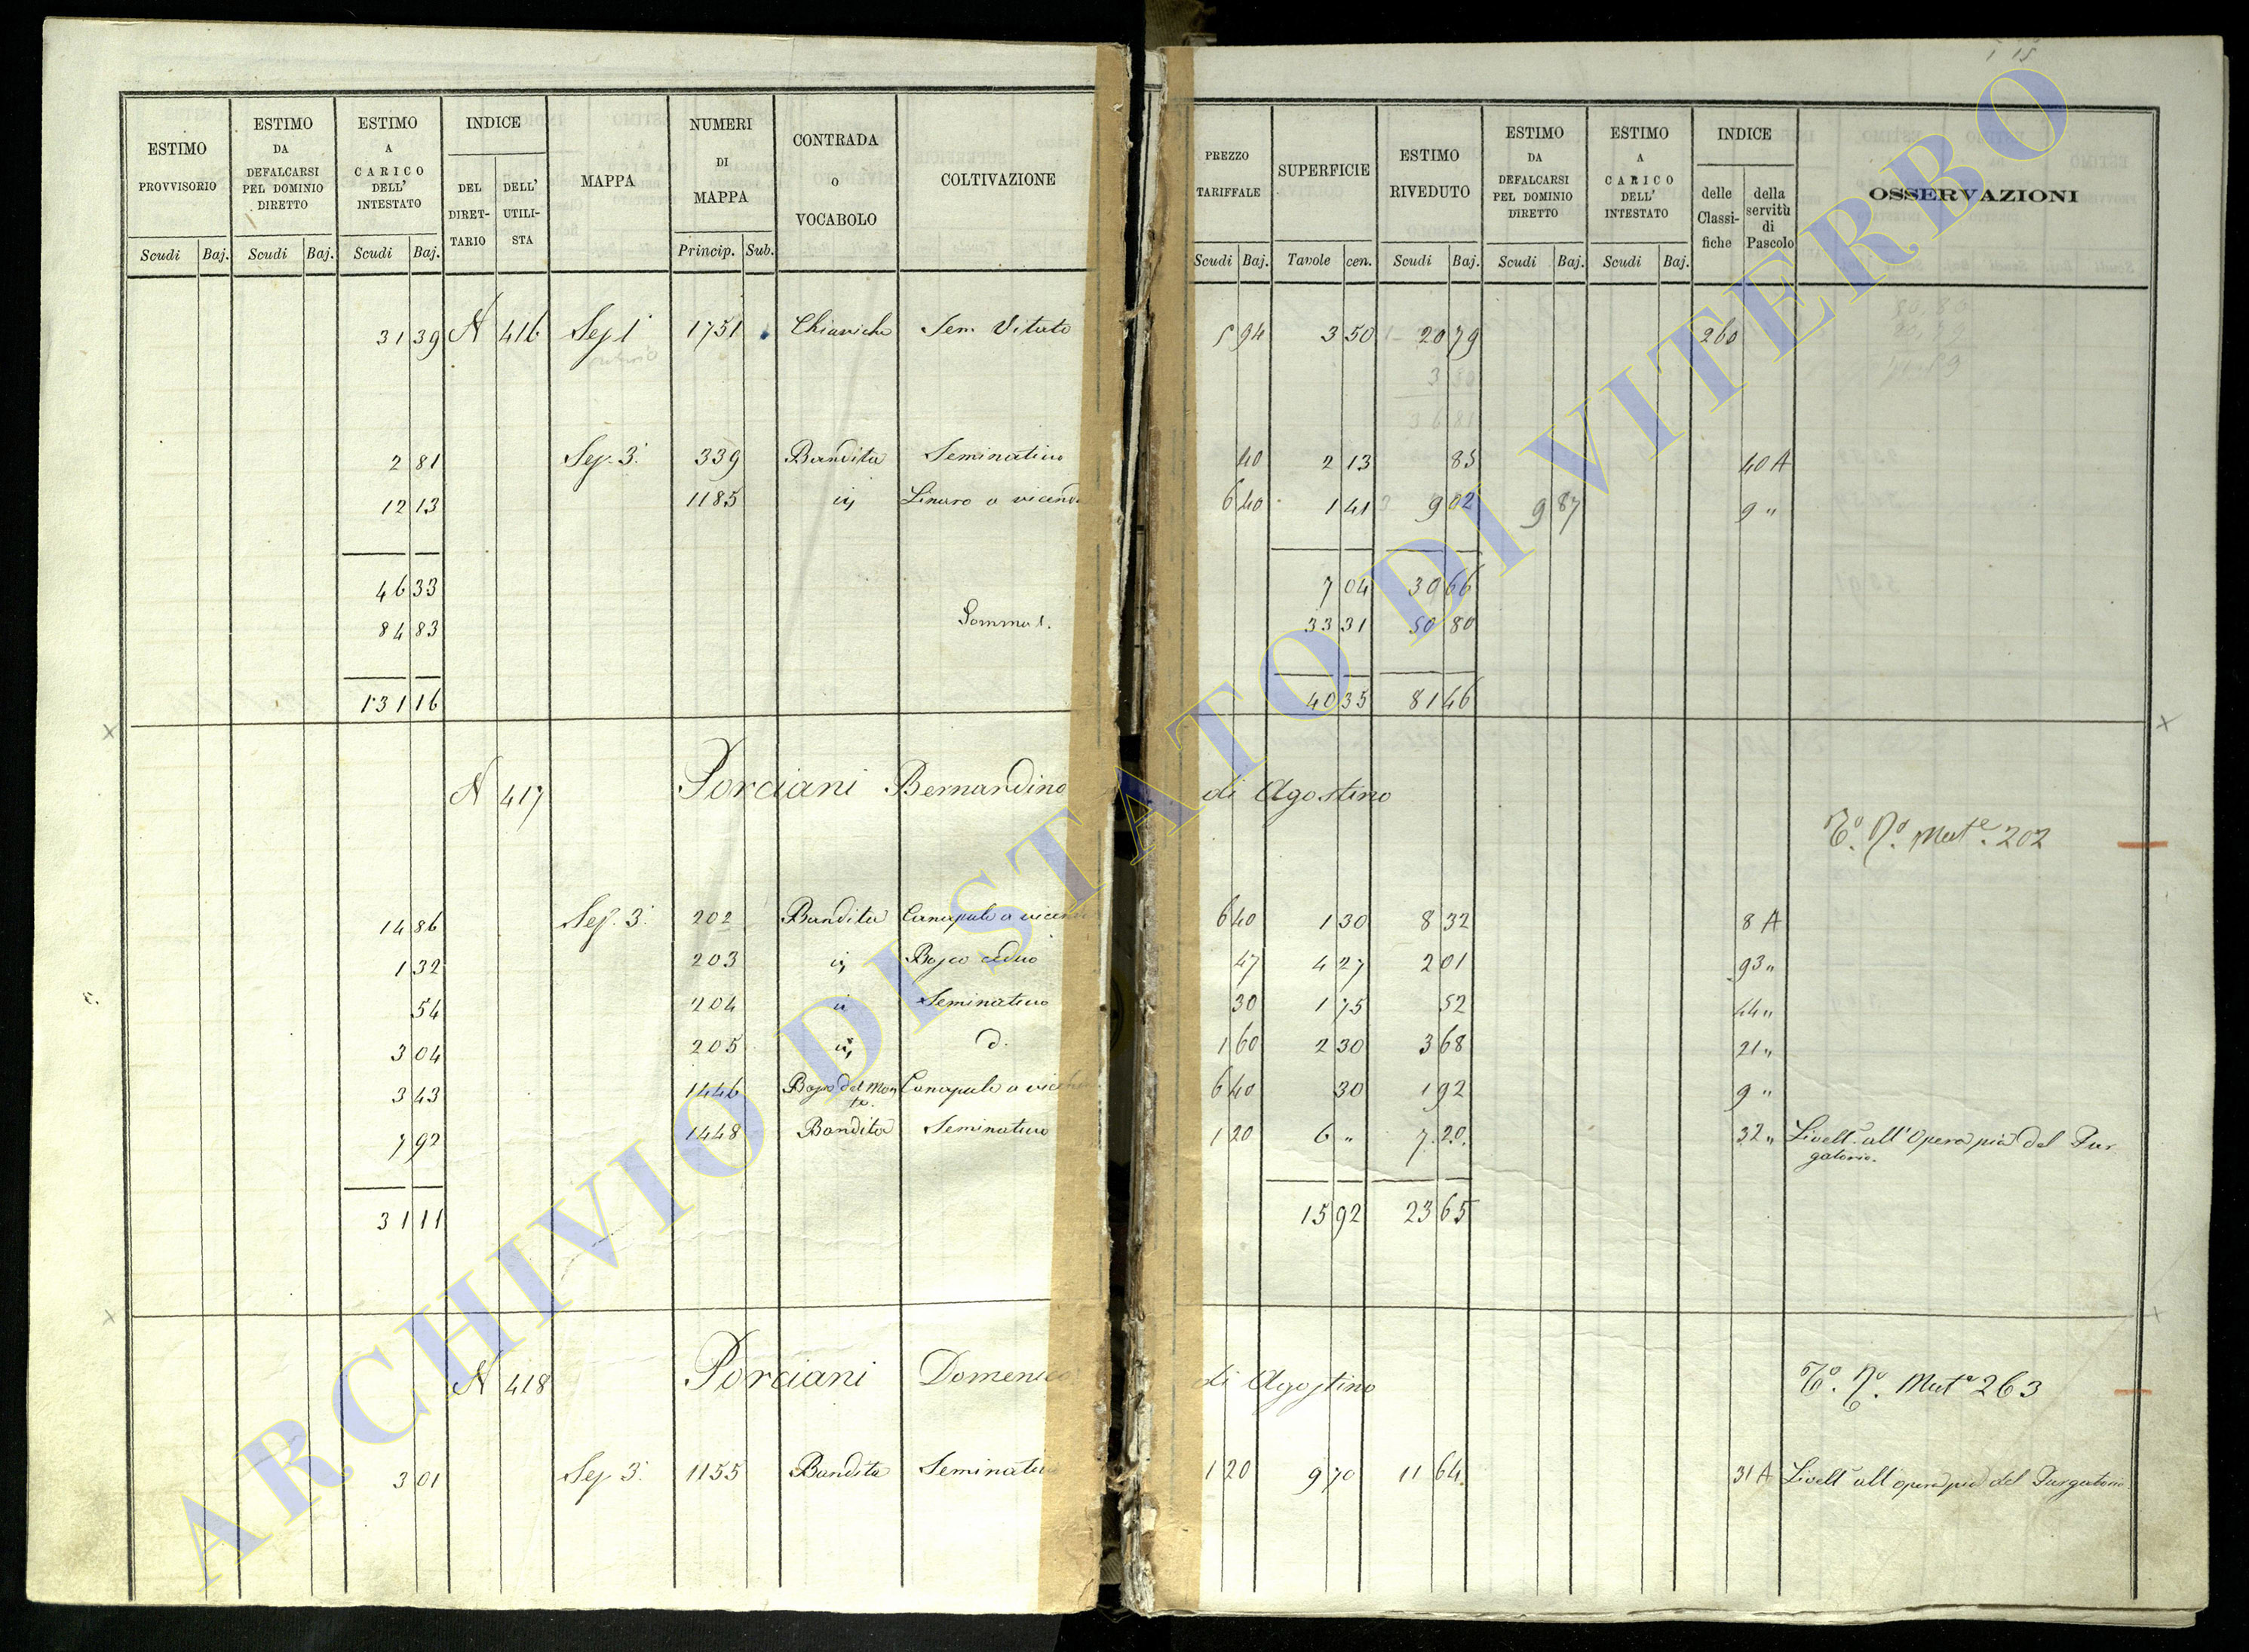 ESTIMO PROVVISORIO | ESTIMO DA DEFALCARSI PEL DOMINIO DIRETTO | ESTIMO A CARICO DELL' INTESTATO | INDICE | MAPPA | NUMERI DI MAPPA | CONTRADA O VOCABOLO | COLTIVAZIONE | PREZZO TARIFFALE | SUPERFICIE | ESTIMO RIVEDUTO | ESTIMO DA DEFALCARSI PEL DOMINIO DIRETTO | ESTIMO A CARICO DELL' INTESTATO | INDICE | OSSERVAZIONI
DEL DIRET-TARIO | DELL' UTILI-STA | delle Classi-fiche | della servitù di Pascolo
Scudi | Baj. | Scudi | Baj. | Scudi | Baj. | Princip. | Sub. | Scudi | Baj. | Tavole | cen. | Scudi | Baj. | Scudi | Baj. | Scudi | Baj.
31 39 N 416 Sez 1ª 1751 Sem. Vitato 5 94 3 50 20 79 260
2 81 Sez. 3ª 339 Bandita Seminativo 40 2 13 85 40 A
12 13 1185 Linaro a vicend 6 40 1 41 9 02 9 87 9 "
46 33 7 04 30 66
84 83 Somma 1. 33 31 50 80
131 16 40 35 81 46
N 417 Porciani Bernardino di Agostino
Mut.e 202
14 86 Sez. 3ª 202 Bandita Canapule a vicen 6 40 1 30 8 32 8 A
1 32 203 Bosco ceduo 47 4 27 2 01 93 "
54 204 Seminativo 30 1 75 52 44 "
3 04 205 d. 1 60 2 30 3 68 21 "
3 43 1446 Canapule a vicen 6 40 30 1 92 9 "
7 92 1448 Bandita Seminativo 1 20 6 " 7 20 32 " Livell.º all'Opera pia del Pur
gatorio.
31 11 15 92 23 65
N 418 Porciani Domenico di Agostino
Mut.e 263
3 01 Sez 3ª 1155 Bandita Seminativo 1 20 9 70 11 64 31 A Livell.º all'opera pia del Purgatorio
ARCHIVIO DI STATO DI VITERBO